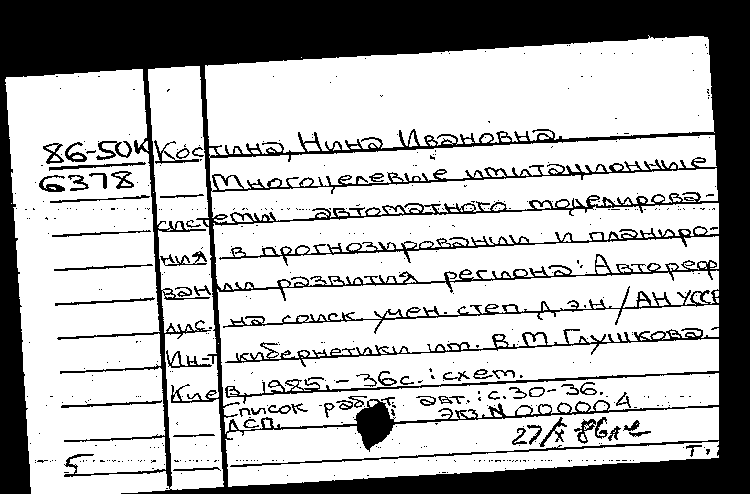 86-50к Костина, Нина Ивановна.
6378 Многоцелевые имитационные
системы автоматного моделирова-
ния в прогнозировании и планиро-
вании развития региона: Автореф
дис. на соиск учен. степ. д.э.н. / АН УССР
Ин-т кибернетики им. В.М. Глушкова.-
Киев, 1985.-36с.: схем.
Список работ авт.: с.30-36.
ДСП. Экз.N 000004
27/X 86
5 Т.